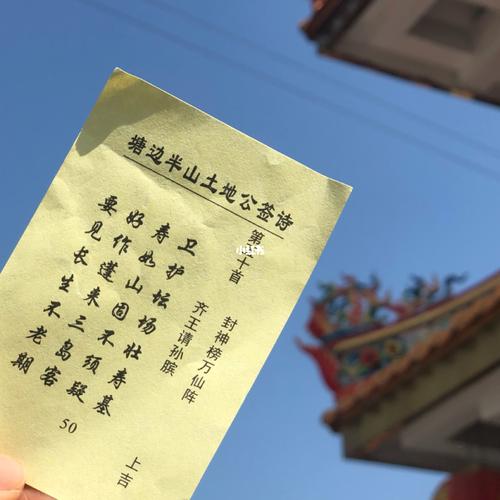 塘边半山土地公签诗
第 十首
小红书
封神榜万仙阵
齐王请孙膑
卫护坛场壮寿基
寿如山固不须疑
好作蓬来三岛客
要见长生不老期
50
上吉